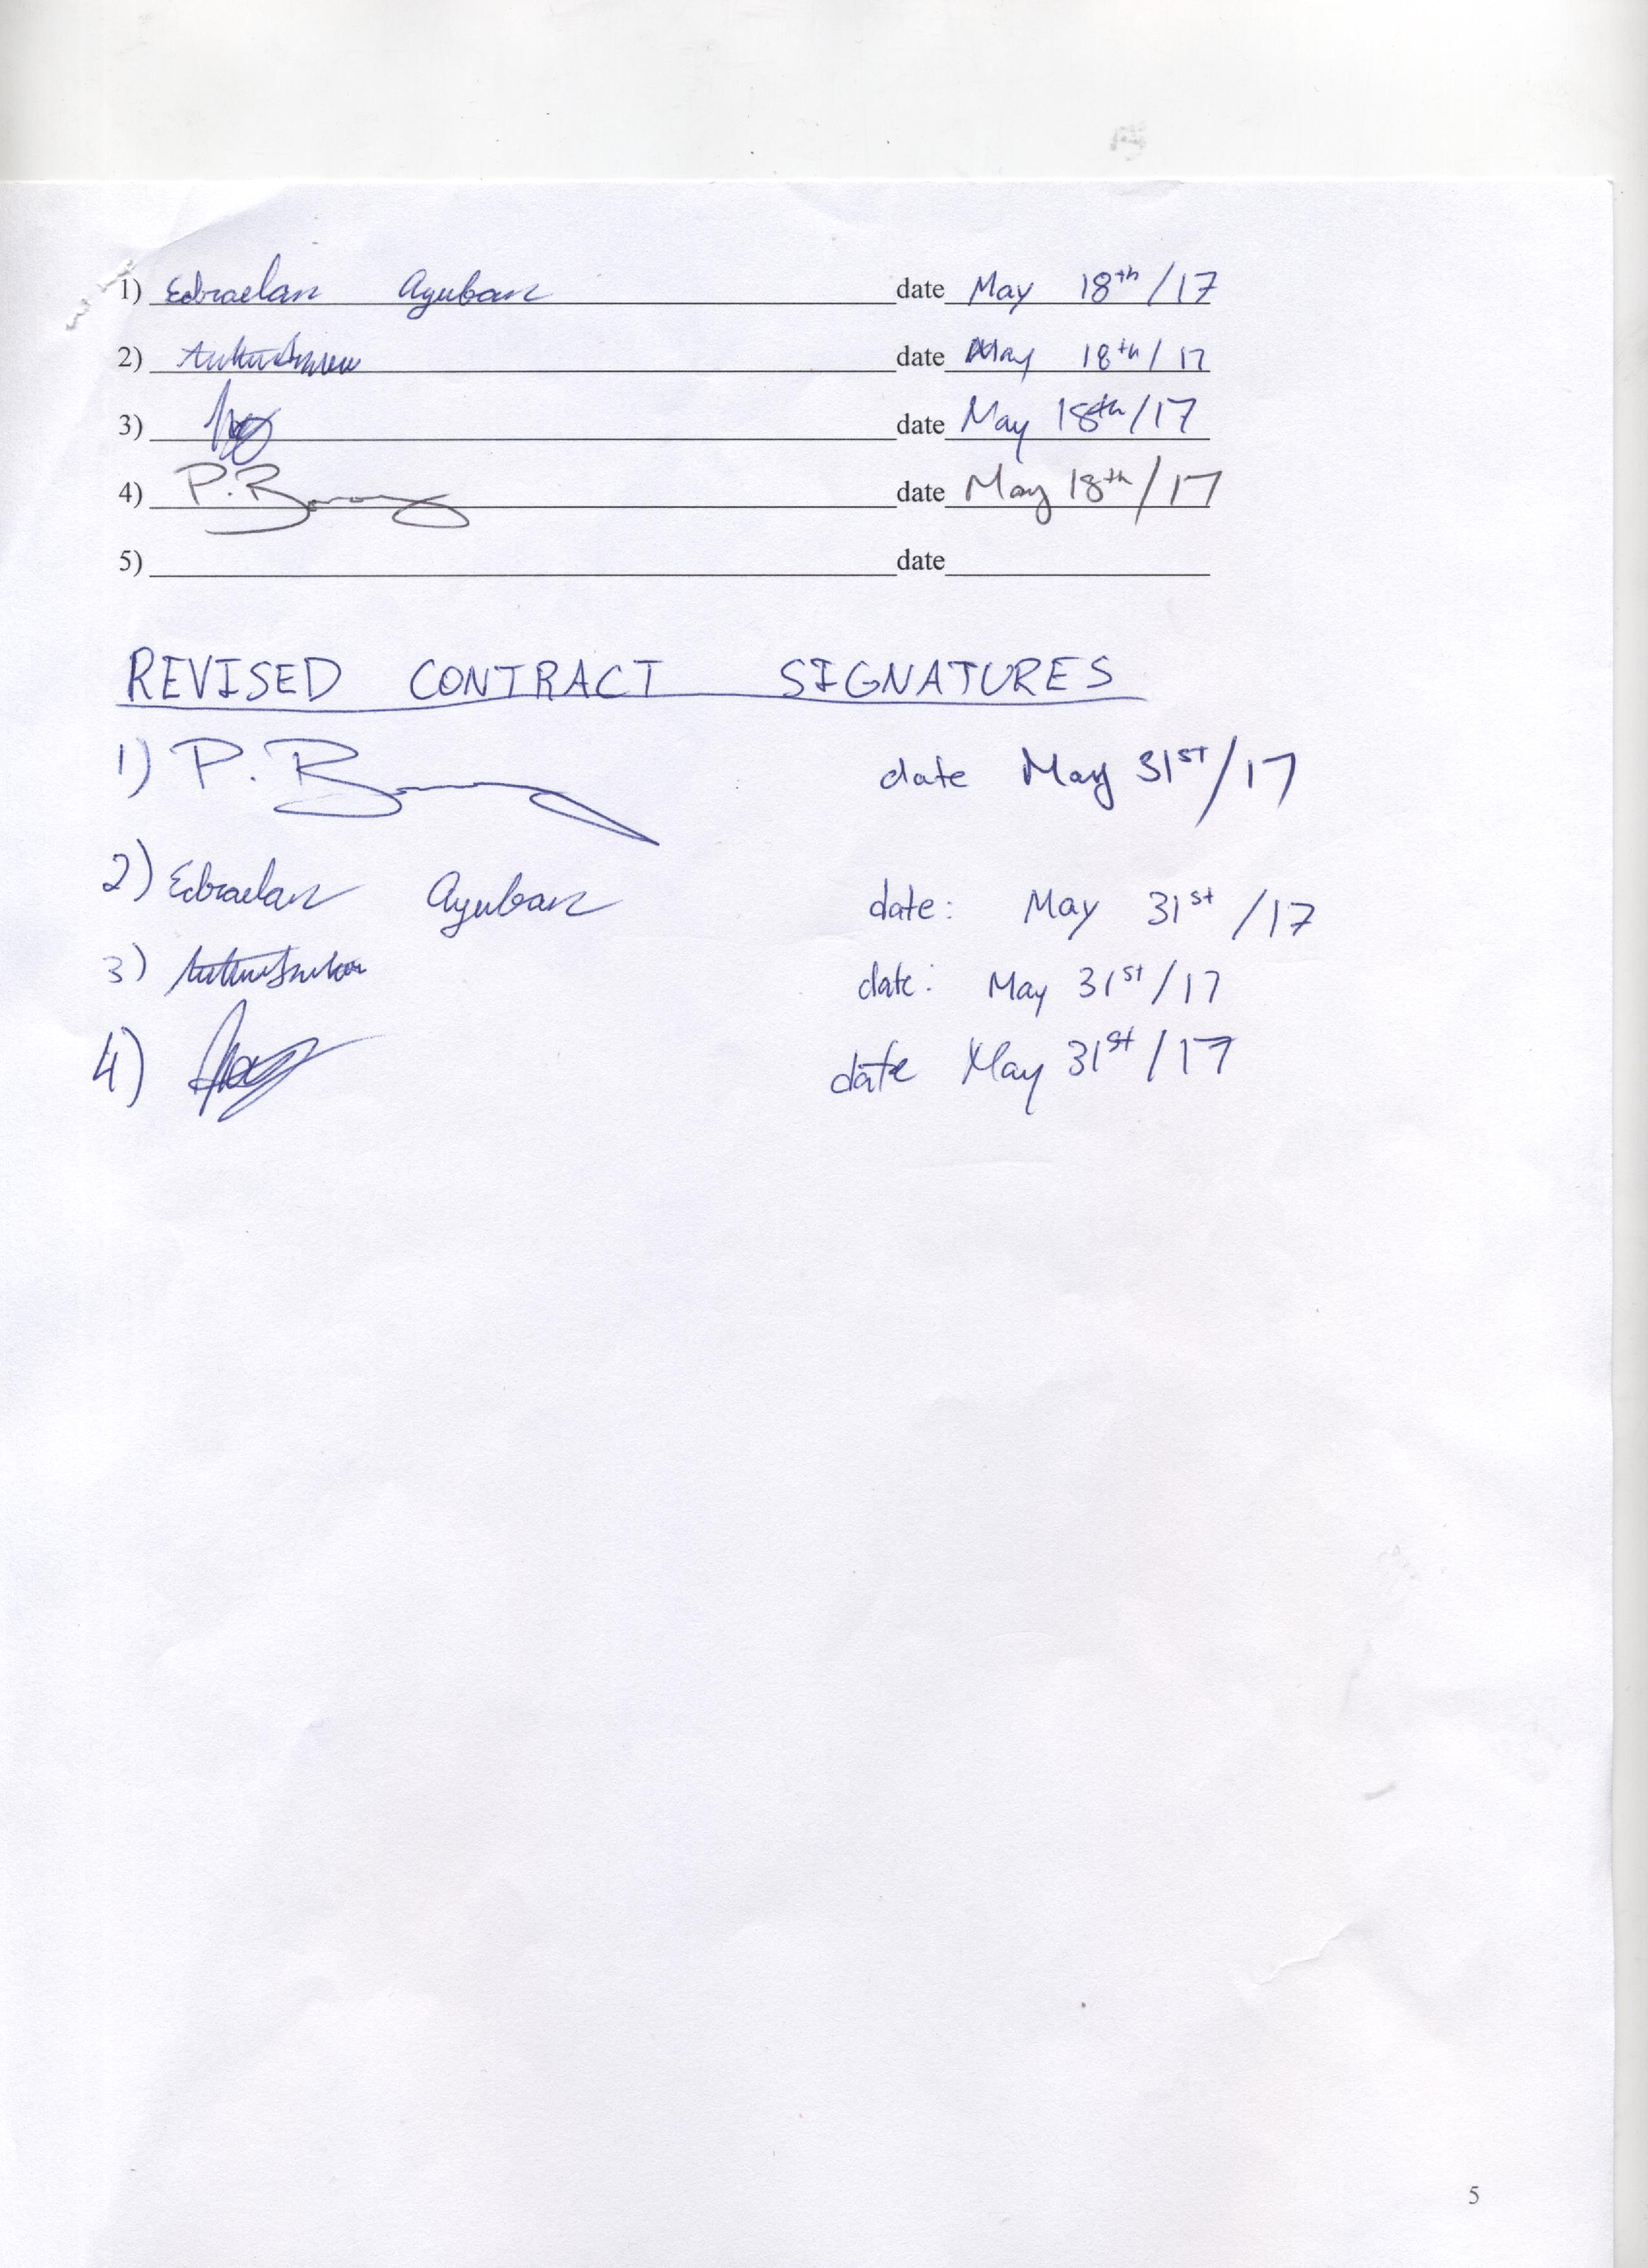 1) Edraelan Ayuban date May 18th/17
2) date May 18th/17
3) date May 18th/17
4) P. B date May 18th/17
5) date
REVISED CONTRACT SIGNATURES
1) P. B date May 31st/17
2) Edraelan Ayuban date: May 31st/17
3) date: May 31st/17
4) date May 31st/17
5